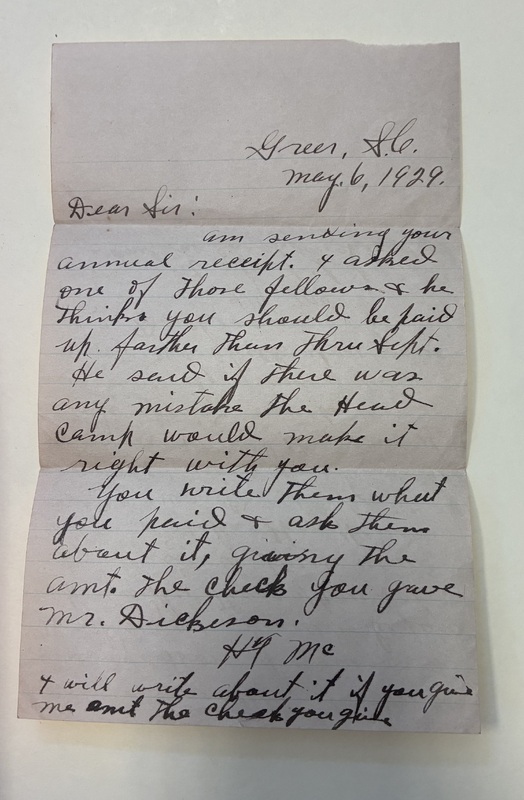 Greer, S.C.
May. 6, 1929.
Dear Sir:
am sending your
annual receipt. I asked
one of those fellows & he
thinks you should be paid
up farther than thru Sept.
He said if there was
any mistake the Head
Camp would make it
right with you.
You write them what
you paid & ask them
about it, giving the
amt. the check you gave
Mr. Dickeson.
Mc
I will write about it if you give
me amt the check you give